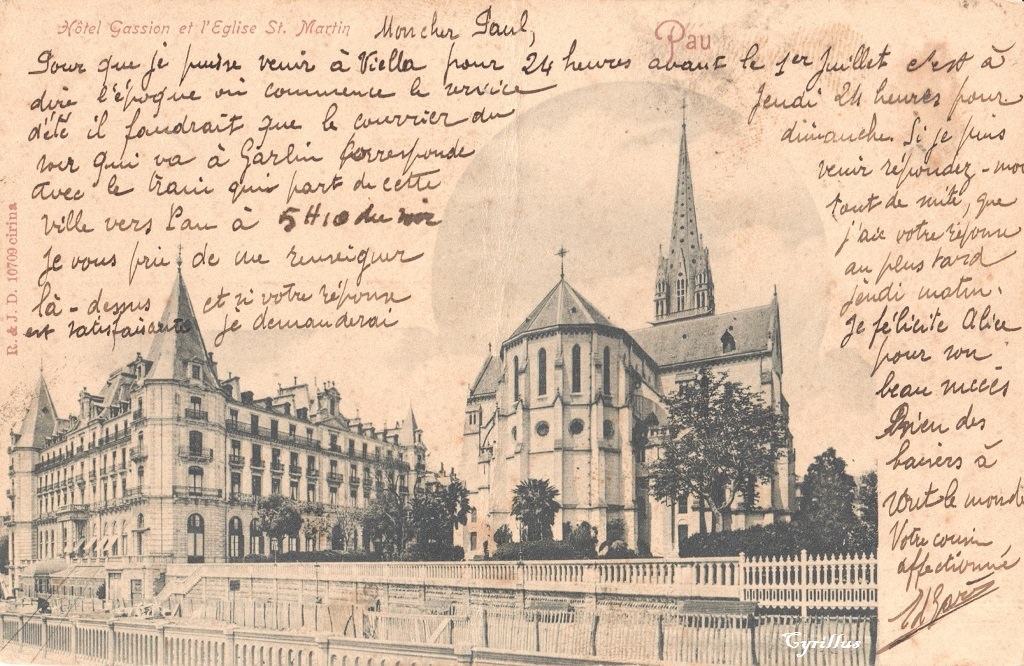 Hôtel Gassion et l'Eglise St. Martin
Pau
Mon cher Paul,
Pour que je puisse venir à Viella pour 24 heures avant le 1er Juillet c'est à
dire l'époque où commence le service
d'été il faudrait que le courrier du
soir qui va à Garlin Corresponde
avec le train qui part de cette
ville vers Pau à 5H10 du soir
Je vous prie de me renseigner
là-dessus et si votre réponse
est satisfaisante je demanderai
Jeudi 24 heures pour
dimanche. Si je puis
venir répondez-moi
tout de suite, que
j'aie votre réponse
au plus tard
jeudi matin.
Je félicite Alice
pour son
beau succès
Bien des
baisers à
tout le monde
Votre cousin
affectionné
R. & J. D. 10709 cirina
Cyrillus